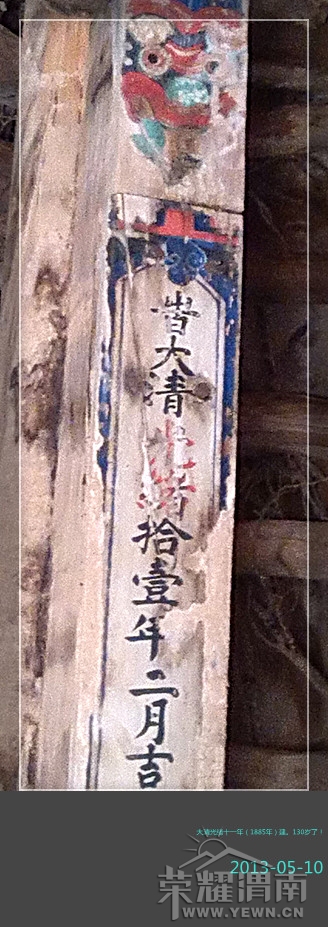 旹大清光緒拾壹年二月吉
大清光绪十一年（1885年）建。130岁了！
2013-05-10
荣耀渭南
WWW.YEWN.CN